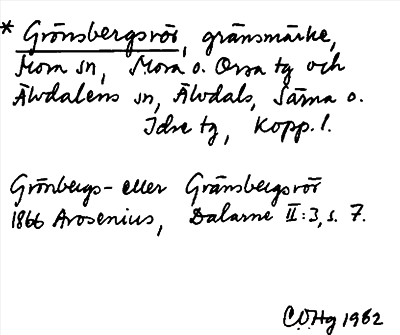 * Grönsbergsrör, gränsmärke,
Mora sn, Mora o. Orsa tg och
Älvdalens sn, Älvdals, Särna o.
Idre tg, Kopp. l.
Grönbergs- eller Gränsbergsrör
1866 Arosenius, Dalarne II:3, s. 7.
COHg 1982